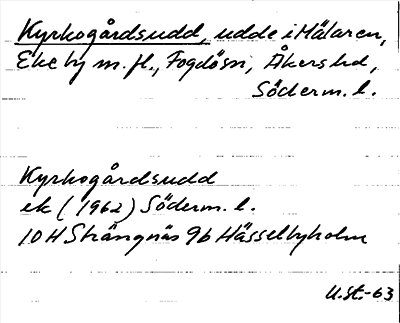 Kyrkogårdsudd, udde i Mälaren,
Ekeby m. fl., Fogdösn, Åkers hd,
Söderm. l.
Kyrkogårdsudd
ek (1962) Söderm. l.
10 H Strängnäs 9b Hässelbyholm
U.St.-63